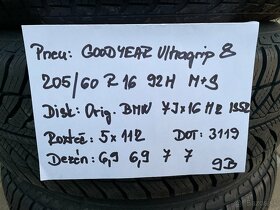 Pneu: GOODYEAR Ultragrip 8
205/60 R 16 92H M+S
Disk: Orig. BMW 7Jx16 H2 IS52
Rozteč: 5x112 DOT: 3119
Dezén: 6,9 6,9 7 7
9B